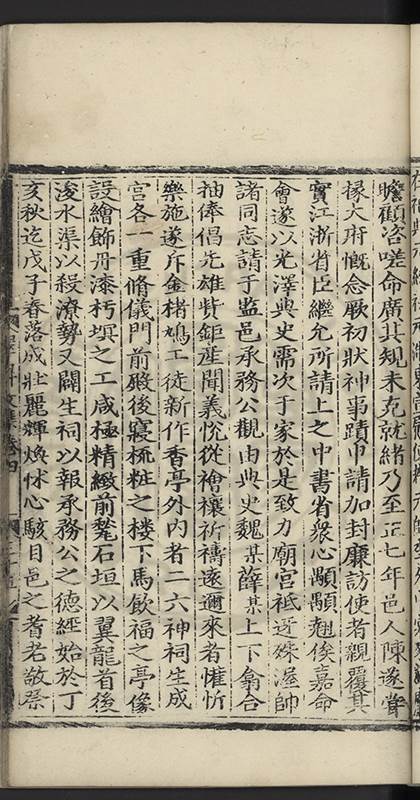 瞻顧咨嗟命廣其規未克就緒乃至正七年邑人陳遂嘗
掾大府慨念厥初狀神事蹟申請加封廉訪使者親覆其
實江浙省臣繼允所請上之中書省衆心顒顒翹俟嘉命
會遂以光澤典史需次于家於是致力廟宮祗迓殊渥帥
諸同志請于監邑承務公觀由典史魏某薛某上下翕合
抽俸倡先雄貲鉅產聞義悅從禬禳祈禱遂邇來者懽忻
樂施遂斥金楮鳩工徒新作香亭外內者二六神祠生成
宮各一重脩儀門前殿後寢梳粧之樓下馬飲福之亭像
設繪飾丹漆杇墁之工咸極精緻前甃石垣以翼龍首後
浚水渠以殺潦勢又闢生祠以報承務公之德經始於丁
亥秋迄戊子春落成壯麗輝煥怵心駭目邑之耆老敬祭